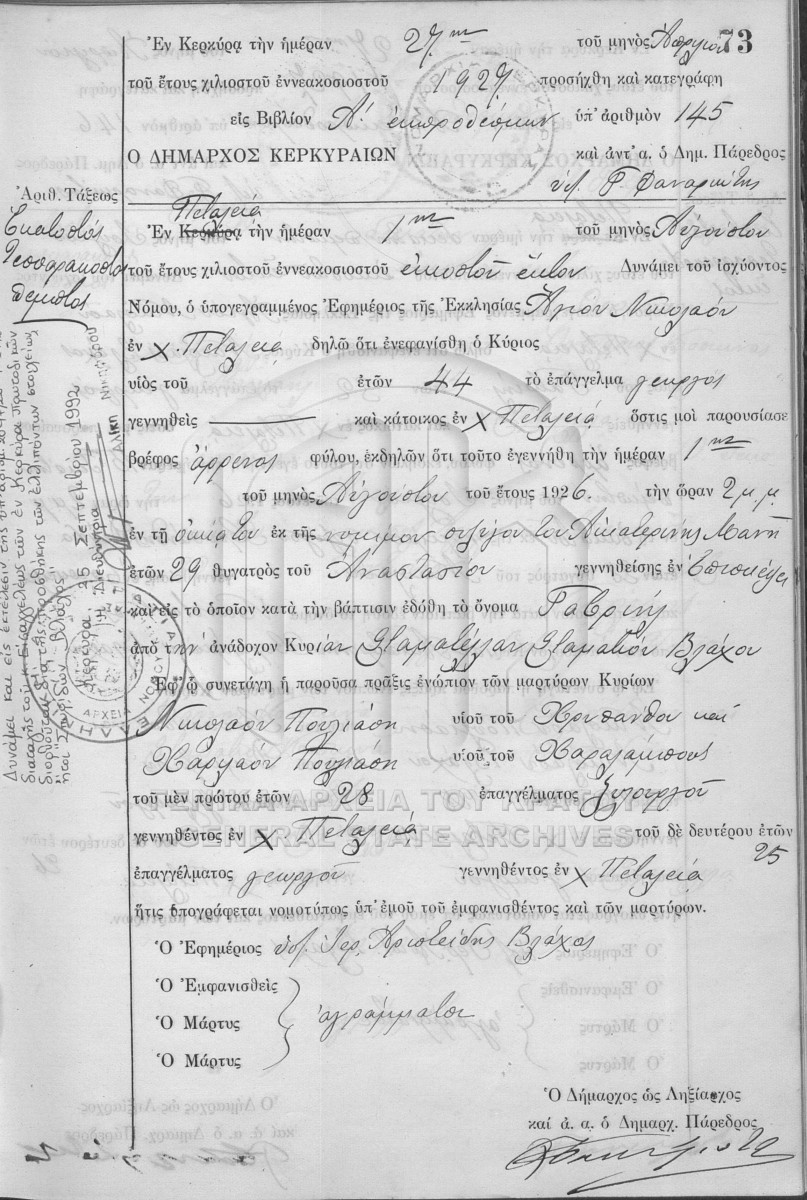 73
Ἐν Κερκύρᾳ τὴν ἡμέραν 27ην τοῦ μηνὸς Ἀπριλίου
τοῦ ἔτους χιλιοστοῦ ἐννεακοσιοστοῦ 1927 προσήχθη καὶ κατεγράφη
εἰς Βιβλίον Α' ἐκπροθέσμων ὑπ' ἀριθμὸν 145
Ο ΔΗΜΑΡΧΟΣ ΚΕΡΚΥΡΑΙΩΝ καὶ ἀντ' α. ὁ Δημ. Πάρεδρος
Ἀριθ. Τάξεως
Ἑκατοστὸς
Τεσσαρακοστὸς
πέμπτος
Πεταλείᾳ
Ἐν Κερκύρᾳ τὴν ἡμέραν 1ην τοῦ μηνὸς Αὐγούστου
τοῦ ἔτους χιλιοστοῦ ἐννεακοσιοστοῦ εἰκοστοῦ ἕκτου Δυνάμει τοῦ ἰσχύοντος
Νόμου, ὁ ὑπογεγραμμένος Ἐφημέριος τῆς Ἐκκλησίας Ἁγίου Νικολάου
ἐν χ. Πεταλείᾳ δηλῶ ὅτι ἐνεφανίσθη ὁ Κύριος
υἱὸς τοῦ ἐτῶν 44 τὸ ἐπάγγελμα γεωργὸς
γεννηθεὶς καὶ κάτοικος ἐν χ Πεταλείᾳ ὅστις μοὶ παρουσίασε
βρέφος ἄρρενος φύλου, ἐκδηλῶν ὅτι τοῦτο ἐγεννήθη τὴν ἡμέραν 1ην
τοῦ μηνὸς Αὐγούστου τοῦ ἔτους 1926. τὴν ὥραν 2 μ.μ.
ἐν τῇ οἰκίᾳ του ἐκ τῆς νομίμου συζύγου του Αἰκατερίνης Μάνη
ἐτῶν 29 θυγατρὸς τοῦ Ἀναστασίου γεννηθείσης ἐν Ἐπισκέψει
καὶ εἰς τὸ ὁποῖον κατὰ τὴν βάπτισιν ἐδόθη τὸ ὄνομα Γαβριὴλ
ἀπὸ τὴν ἀνάδοχον Κυρίαν Σταματέλλαν Σταματίου Βλάχου
Ἐφ' ᾧ συνετάγη ἡ παροῦσα πρᾶξις ἐνώπιον τῶν μαρτύρων Κυρίων
Νικολάου Πουλιάση υἱοῦ τοῦ Χρυσάνθου καὶ
Χαριλάου Πουλιάση υἱοῦ τοῦ Χαραλάμπους
τοῦ μὲν πρώτου ἐτῶν 28 ἐπαγγέλματος ξυλουργοῦ
γεννηθέντος ἐν χ Πεταλείᾳ τοῦ δὲ δευτέρου ἐτῶν 25
ἐπαγγέλματος γεωργοῦ γεννηθέντος ἐν χ Πεταλείᾳ
ἥτις ὑπογράφεται νομοτύπως ὑπ' ἐμοῦ τοῦ ἐμφανισθέντος καὶ τῶν μαρτύρων.
Ὁ Ἐφημέριος ὑπ. Ἱερ. Ἀριστείδης Βλάχος
Ὁ Ἐμφανισθεὶς
Ὁ Μάρτυς ἀγράμματοι
Ὁ Μάρτυς
Ὁ Δήμαρχος ὡς Ληξίαρχος
καί ἀ. α. ὁ Δημαρχ. Πάρεδρος
ΓΕΝΙΚΑ ΑΡΧΕΙΑ ΤΟΥ ΚΡΑΤΟΥΣ
GENERAL STATE ARCHIVES
διορθοῦται διὰ τῆς προσθήκης τῶν ἐλλιπόντων στοιχείων
ἤτοι "Σπυρίδων Βλάχος"
Κέρκυρα 25 Σεπτεμβρίου 1992